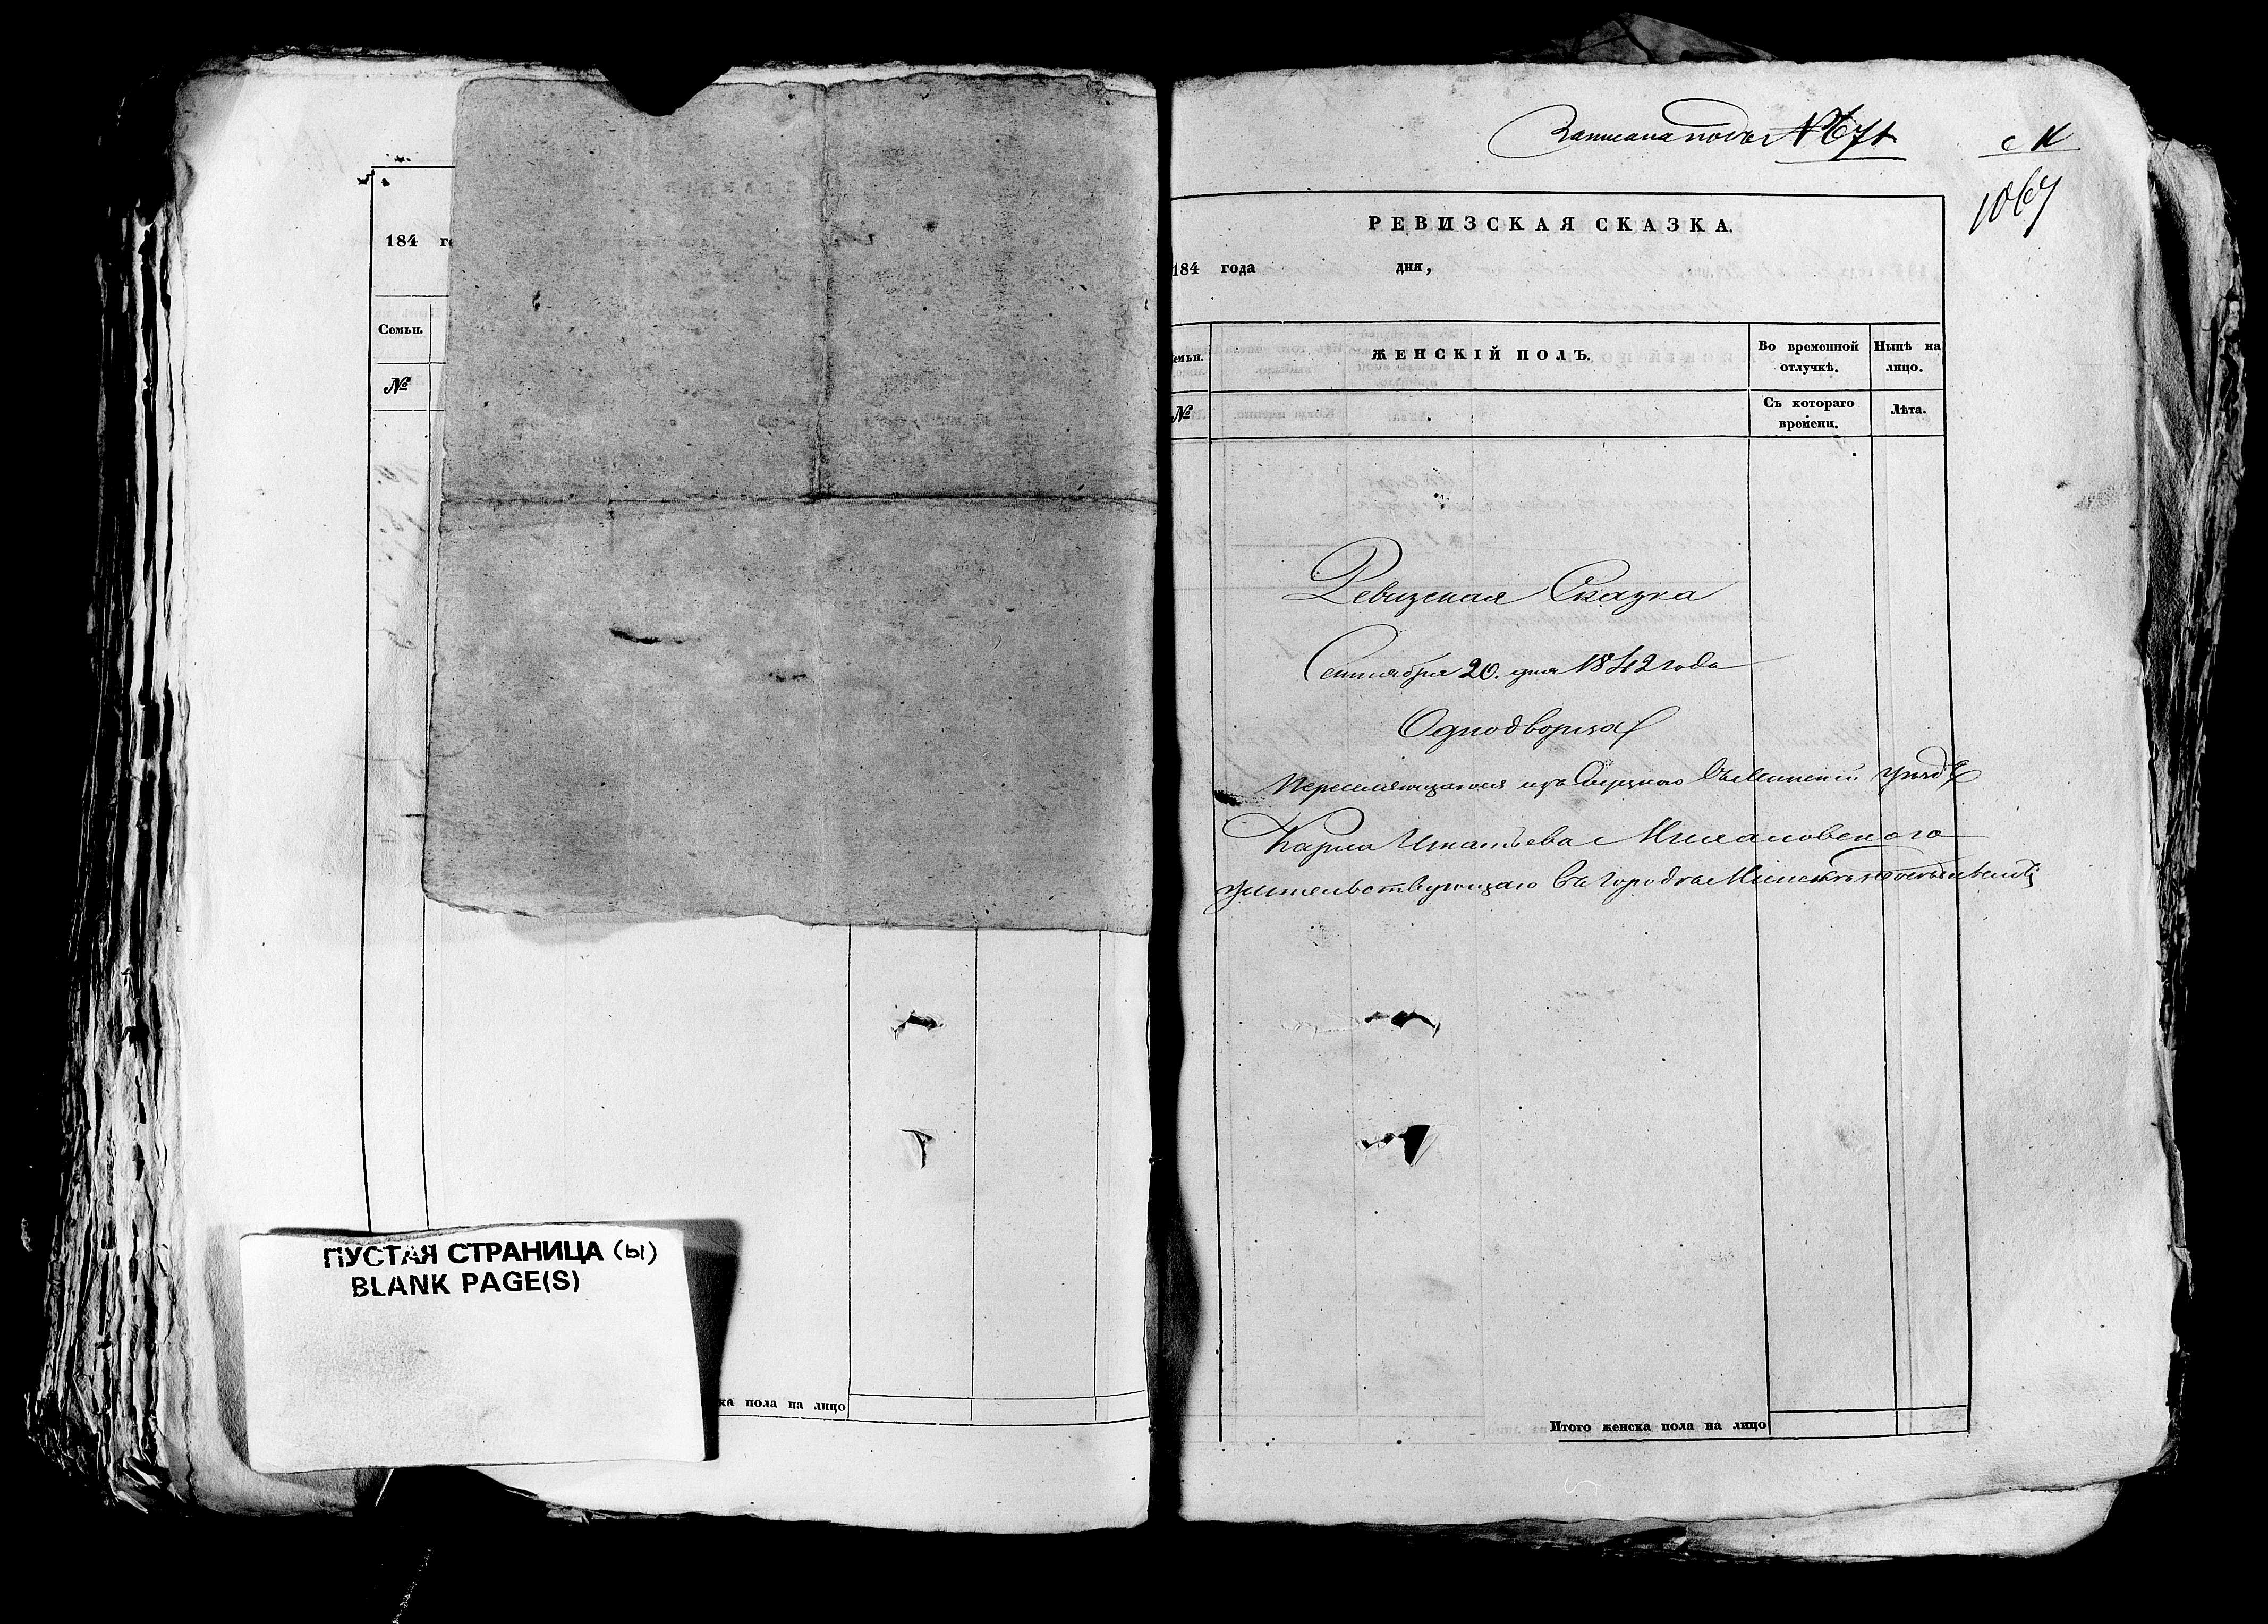 184 го
Семьи.
№
ПУСТАЯ СТРАНИЦА (ы)
BLANK PAGE(S)
ка пола на лицо
Записана подъ № 671
М
1067
РЕВИЗСКАЯ СКАЗКА.
184 года дня,
Семьи. ЖЕНСКІЙ ПОЛЪ. Во временной отлучкѣ. Нынѣ на лицо.
№ Съ котораго времени. Лѣта.
Ревизская Сказка
Сентября 20. дня 1842 года
Однодворца
Переселяющагося изъ Слуцкаго въ Минскій уѣздъ
Карла Игнатьева Милаловскаго
жительствующаго въ городѣ Минскѣ
Итого женска пола на лицо